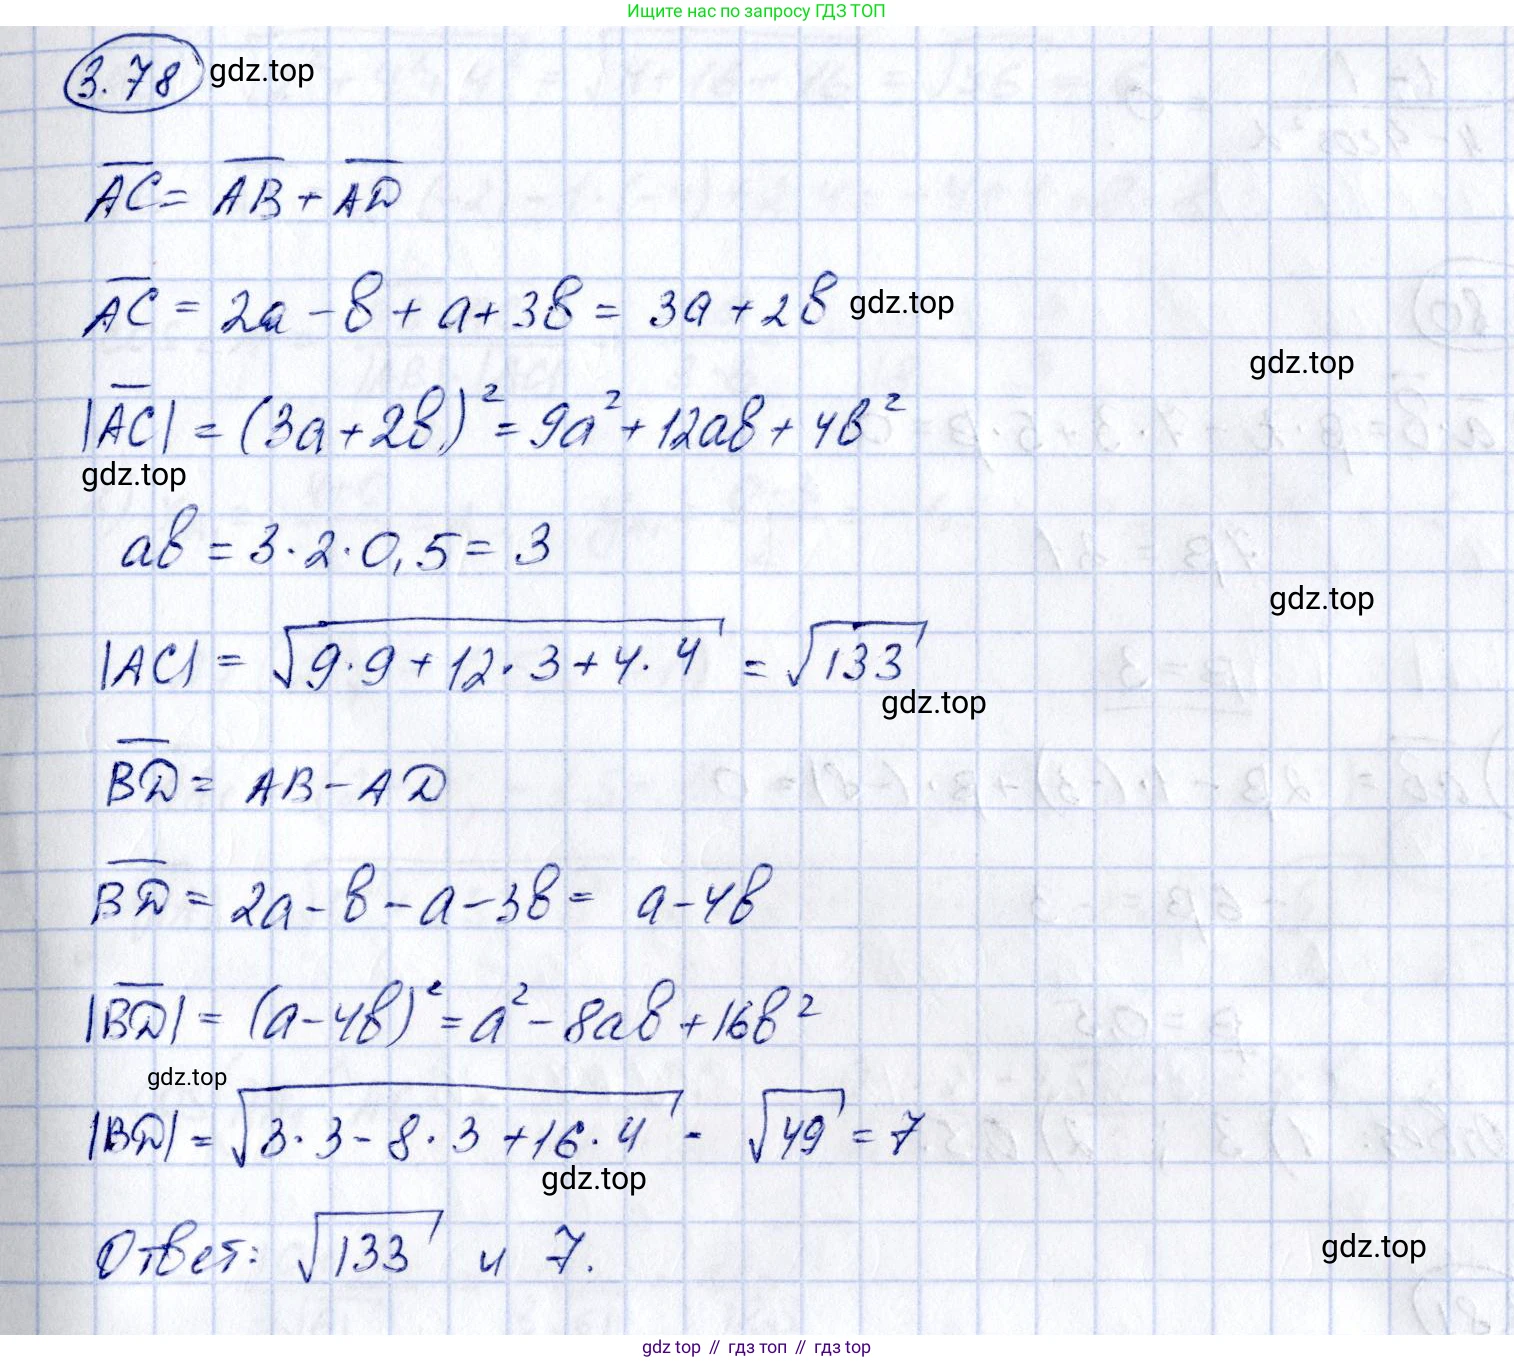 Ищите нас по запросу ГДЗ ТОП
3.78 gdz.top
AC = AB + AD
AC = 2a - b + a + 3b = 3a + 2b gdz.top
gdz.top
|AC| = (3a + 2b)² = 9a² + 12ab + 4b²
gdz.top
ab = 3 · 2 · 0,5 = 3
gdz.top
|AC| = √9·9 + 12·3 + 4·4 = √133
gdz.top
BD = AB - AD
BD = 2a - b - a - 3b = a - 4b
|BD| = (a - 4b)² = a² - 8ab + 16b²
gdz.top
|BD| = √3·3 - 8·3 + 16·4 - √49 = 7
gdz.top
Ответ: √133 и 7.
gdz.top
gdz top // гдз топ // gdz top